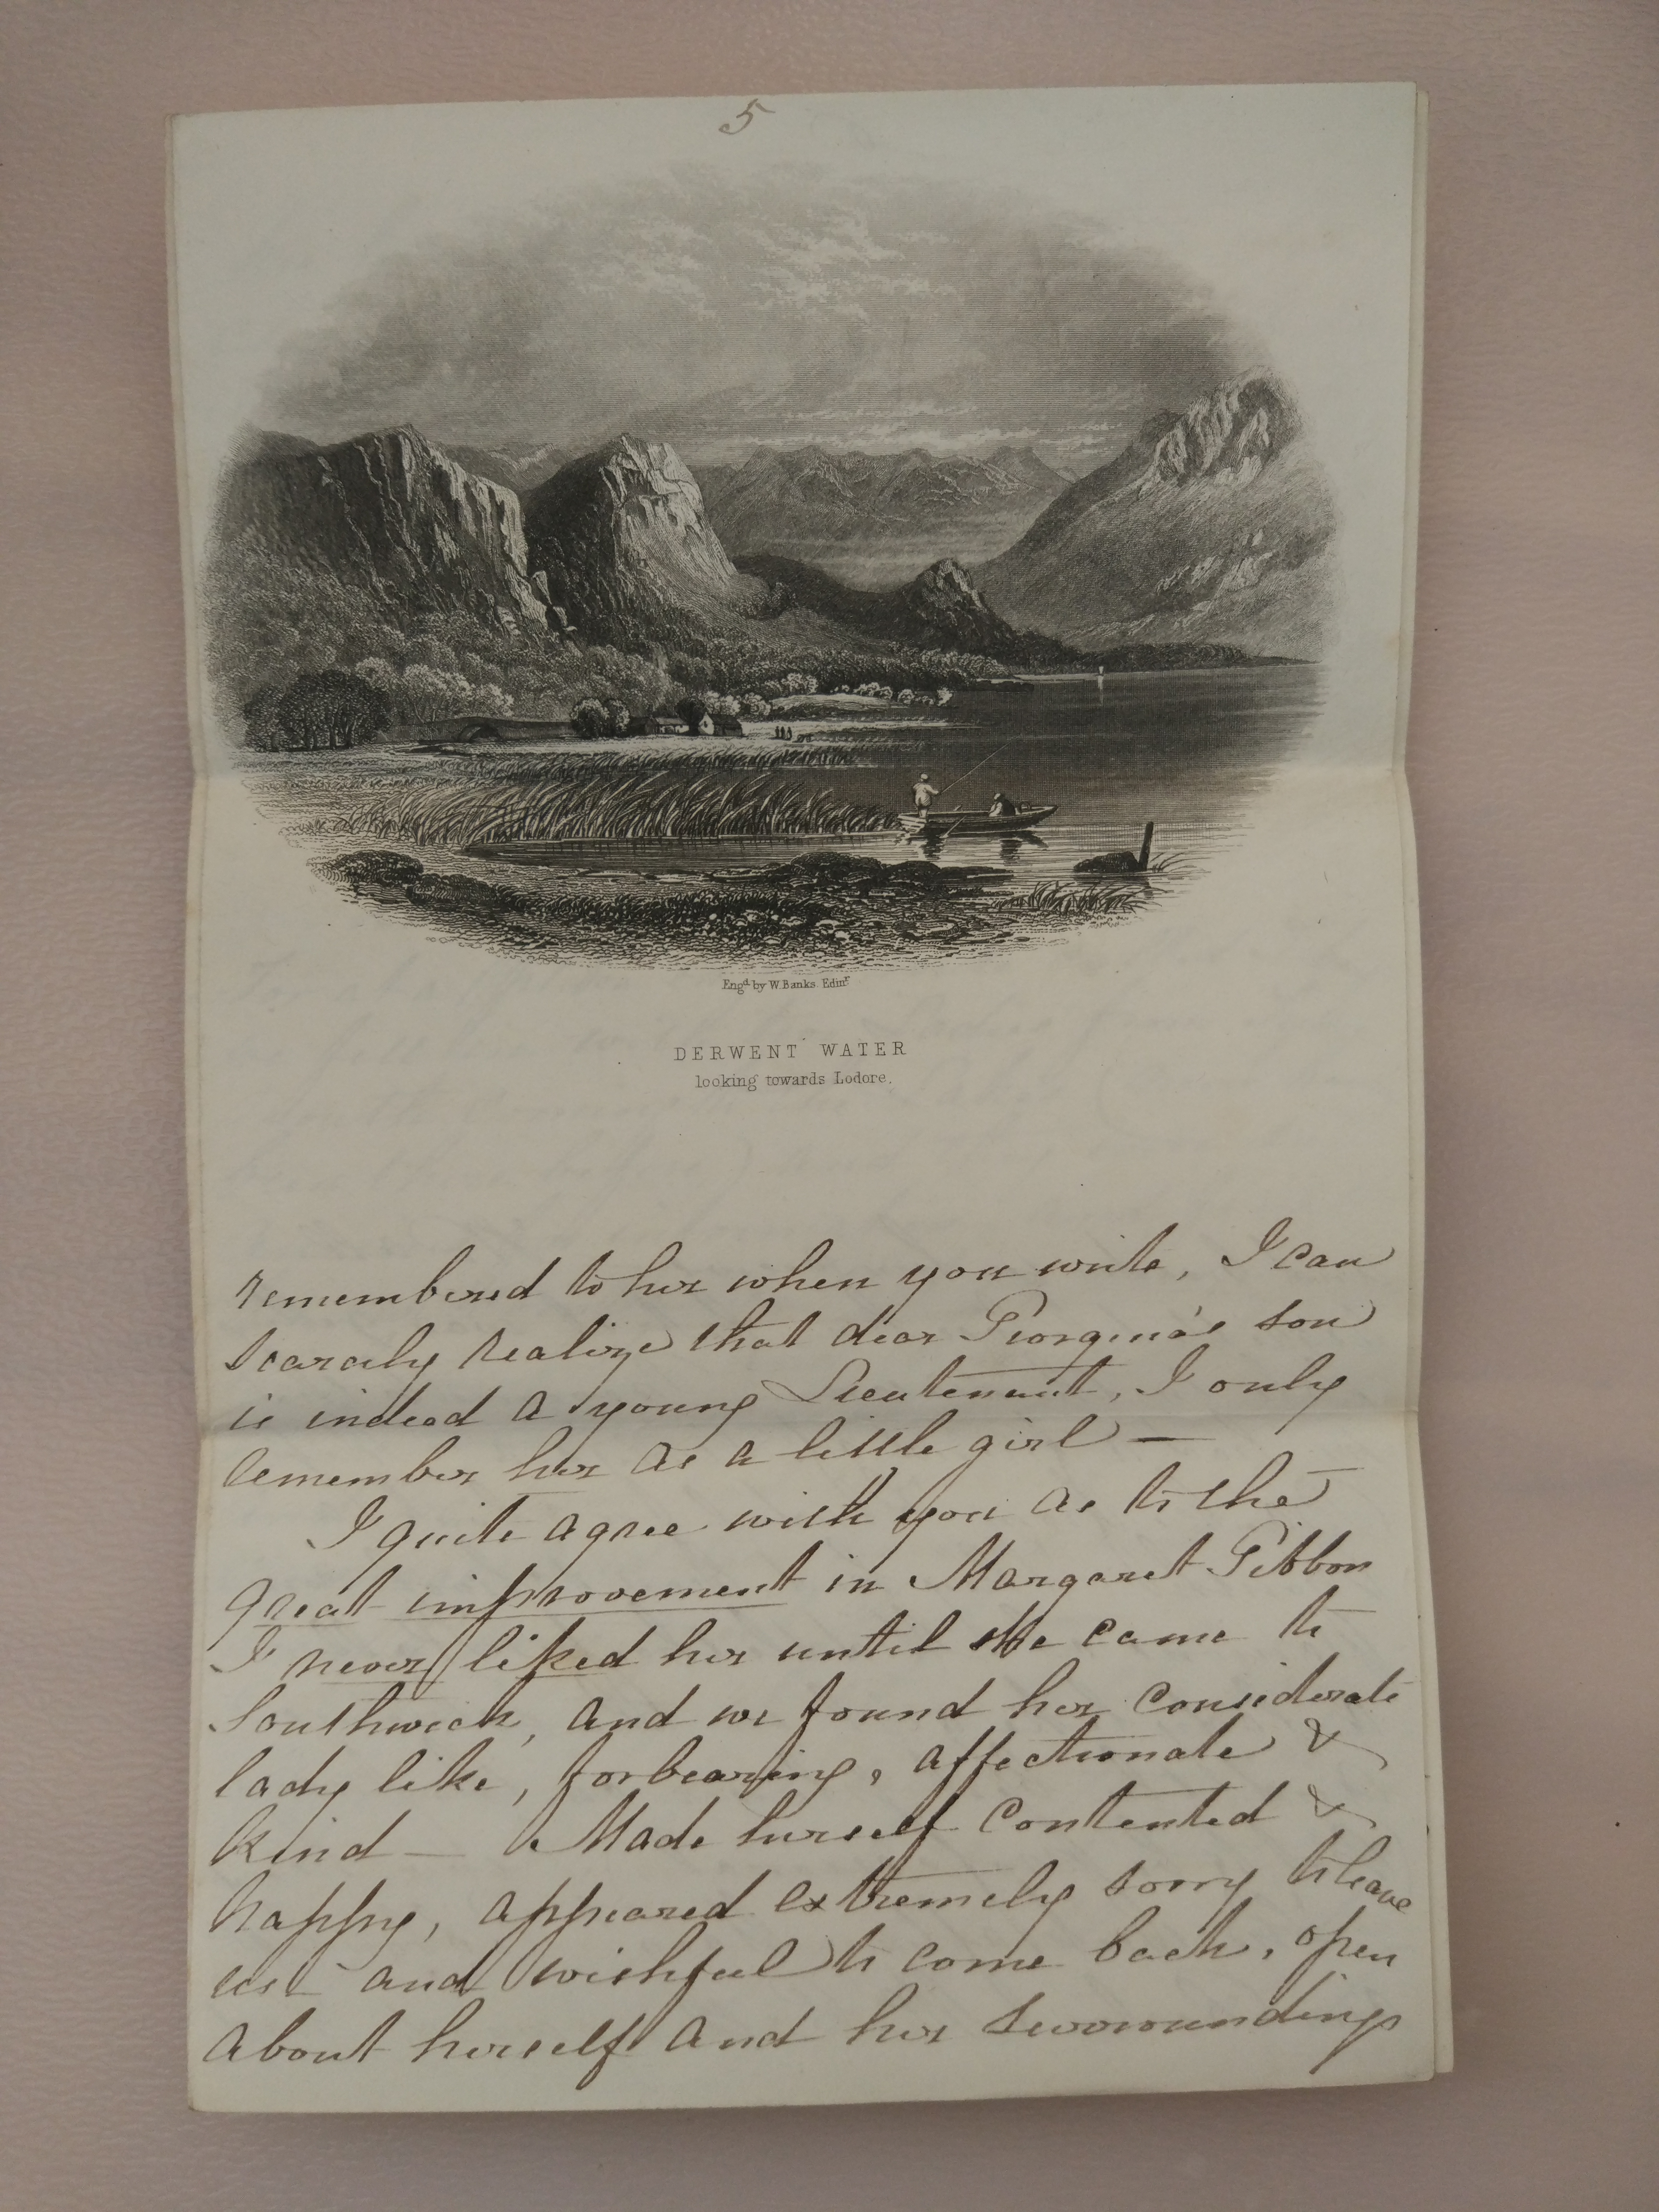 5
Engd by W. Banks Edinr
DERWENT WATER
looking towards Lodore.
remembered to her when you write, I can
scarcely realize that dear Georgina's son
is indeed a young Lieutenant, I only
remember her as a little girl —
I quite agree with you as to the
great improvement in Margaret Gibbon
I never liked her until she came to
Southwick, and we found her considerate
lady like, forbearing, affectionate &
kind — Made herself contented &
happy, appeared extremely sorry to leave
us — and wishful to come back, open
about herself and her surroundings